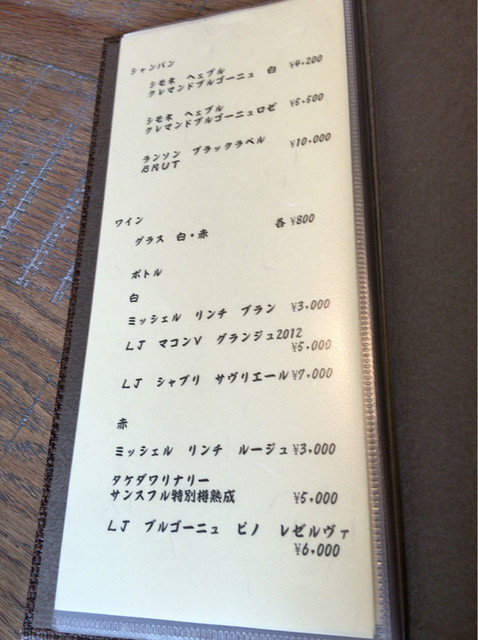 シャンパン
シモネ ヘェブル
クレマンドブルゴーニュ 白 ¥4,200
シモネ ヘェブル
クレマンドブルゴーニュロゼ ¥5,500
ランソン ブラックラベル ¥10,000
BRUT
ワイン
グラス 白・赤 各 ¥800
ボトル
白
ミッシェル リンチ ブラン ¥3,000
LJ マコンV グランジュ2012
¥5,000
LJ シャブリ サヴリエール ¥7,000
赤
ミッシェル リンチ ルージュ ¥3,000
タケダワリナリー
サンスフル特別樽熟成 ¥5,000
LJ ブルゴーニュ ピノ レゼルヴァ
¥6,000